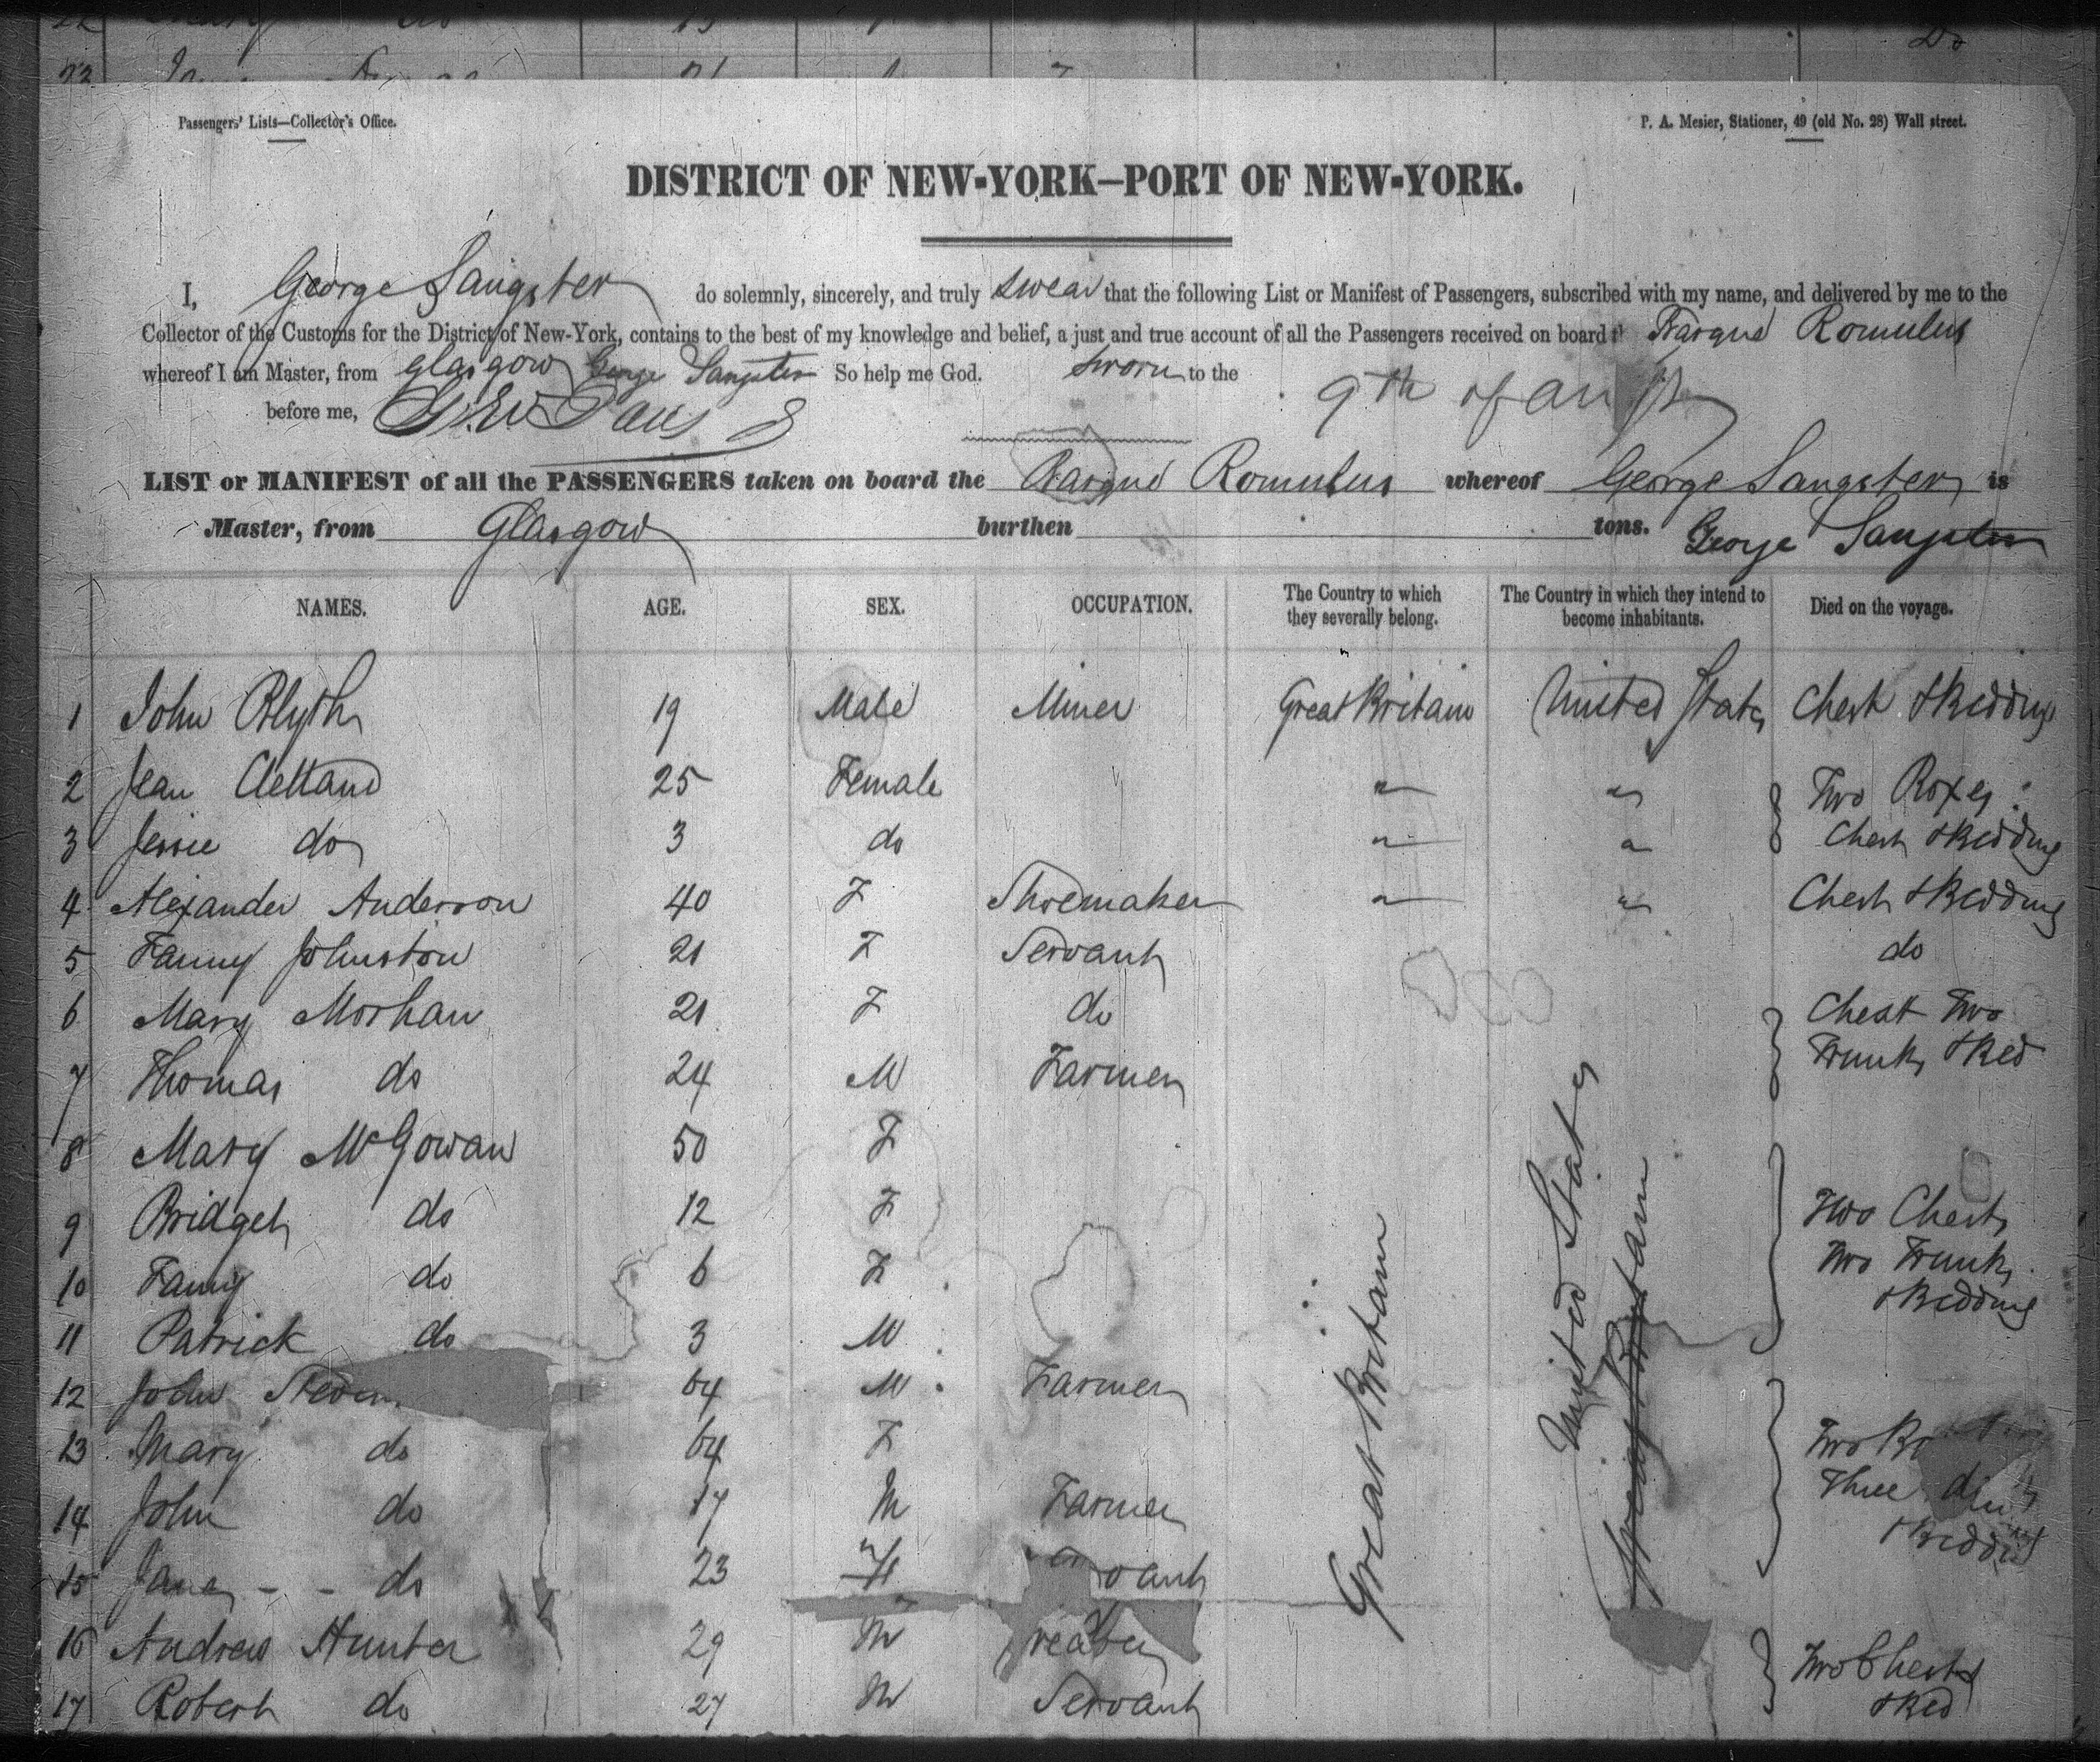 Passengers' Lists—Collector's Office.
P. A. Mesier, Stationer, 49 (old No. 28) Wall street.
DISTRICT OF NEW-YORK—PORT OF NEW-YORK.
I, George Sangster do solemnly, sincerely, and truly swear that the following List or Manifest of Passengers, subscribed with my name, and delivered by me to the
Collector of the Customs for the District of New-York, contains to the best of my knowledge and belief, a just and true account of all the Passengers received on board Barque Romulus
whereof I am Master, from Glasgow George Sangster So help me God. sworn to the 9th of
before me,
LIST or MANIFEST of all the PASSENGERS taken on board the Barque Romulus whereof George Sangster is
Master, from Glasgow burthen tons. George Sangster
NAMES. AGE. SEX. OCCUPATION. The Country to which they severally belong. The Country in which they intend to become inhabitants. Died on the voyage.
1 John Blyth 19 Male Miner Great Britain United States Chest & Bedding
2 Jean Clelland 25 Female " " Two Boxes
3 Jessie do 3 do " " Chest & Bedding
4 Alexander Anderson 40 F Shoemaker " " Chest & Bedding
5 Fanny Johnston 21 F Servant do
6 Mary Morhan 21 F do Chest Two
7 Thomas do 24 M Farmer Trunks & Bed
8 Mary McGowan 50 F
9 Bridget do 12 F Two Chests
10 Fanny do 6 F Two Trunks
11 Patrick do 3 M & Bedding
Great Britain
United States
Great Britain
12 John 64 M Farmer
13 Mary do 64 F Two
14 John do 17 M Farmer Three
15 Jane - - do 23 & Bedding
16 Andrew Hunter 29 M Two Chests
17 Robert do 27 M Servant & Bed